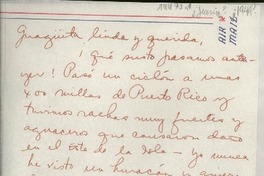 AIR MAIL
Guagüita linda y querida,
¡Qué susto pasamos ante-
yer! Pasó un ciclón a unas
200 millas de Puerto Rico y
tuvimos rachas muy fuertes y
aguaceros que causaron daño
en el Este de la Isla - yo nunca
he visto un huracán y